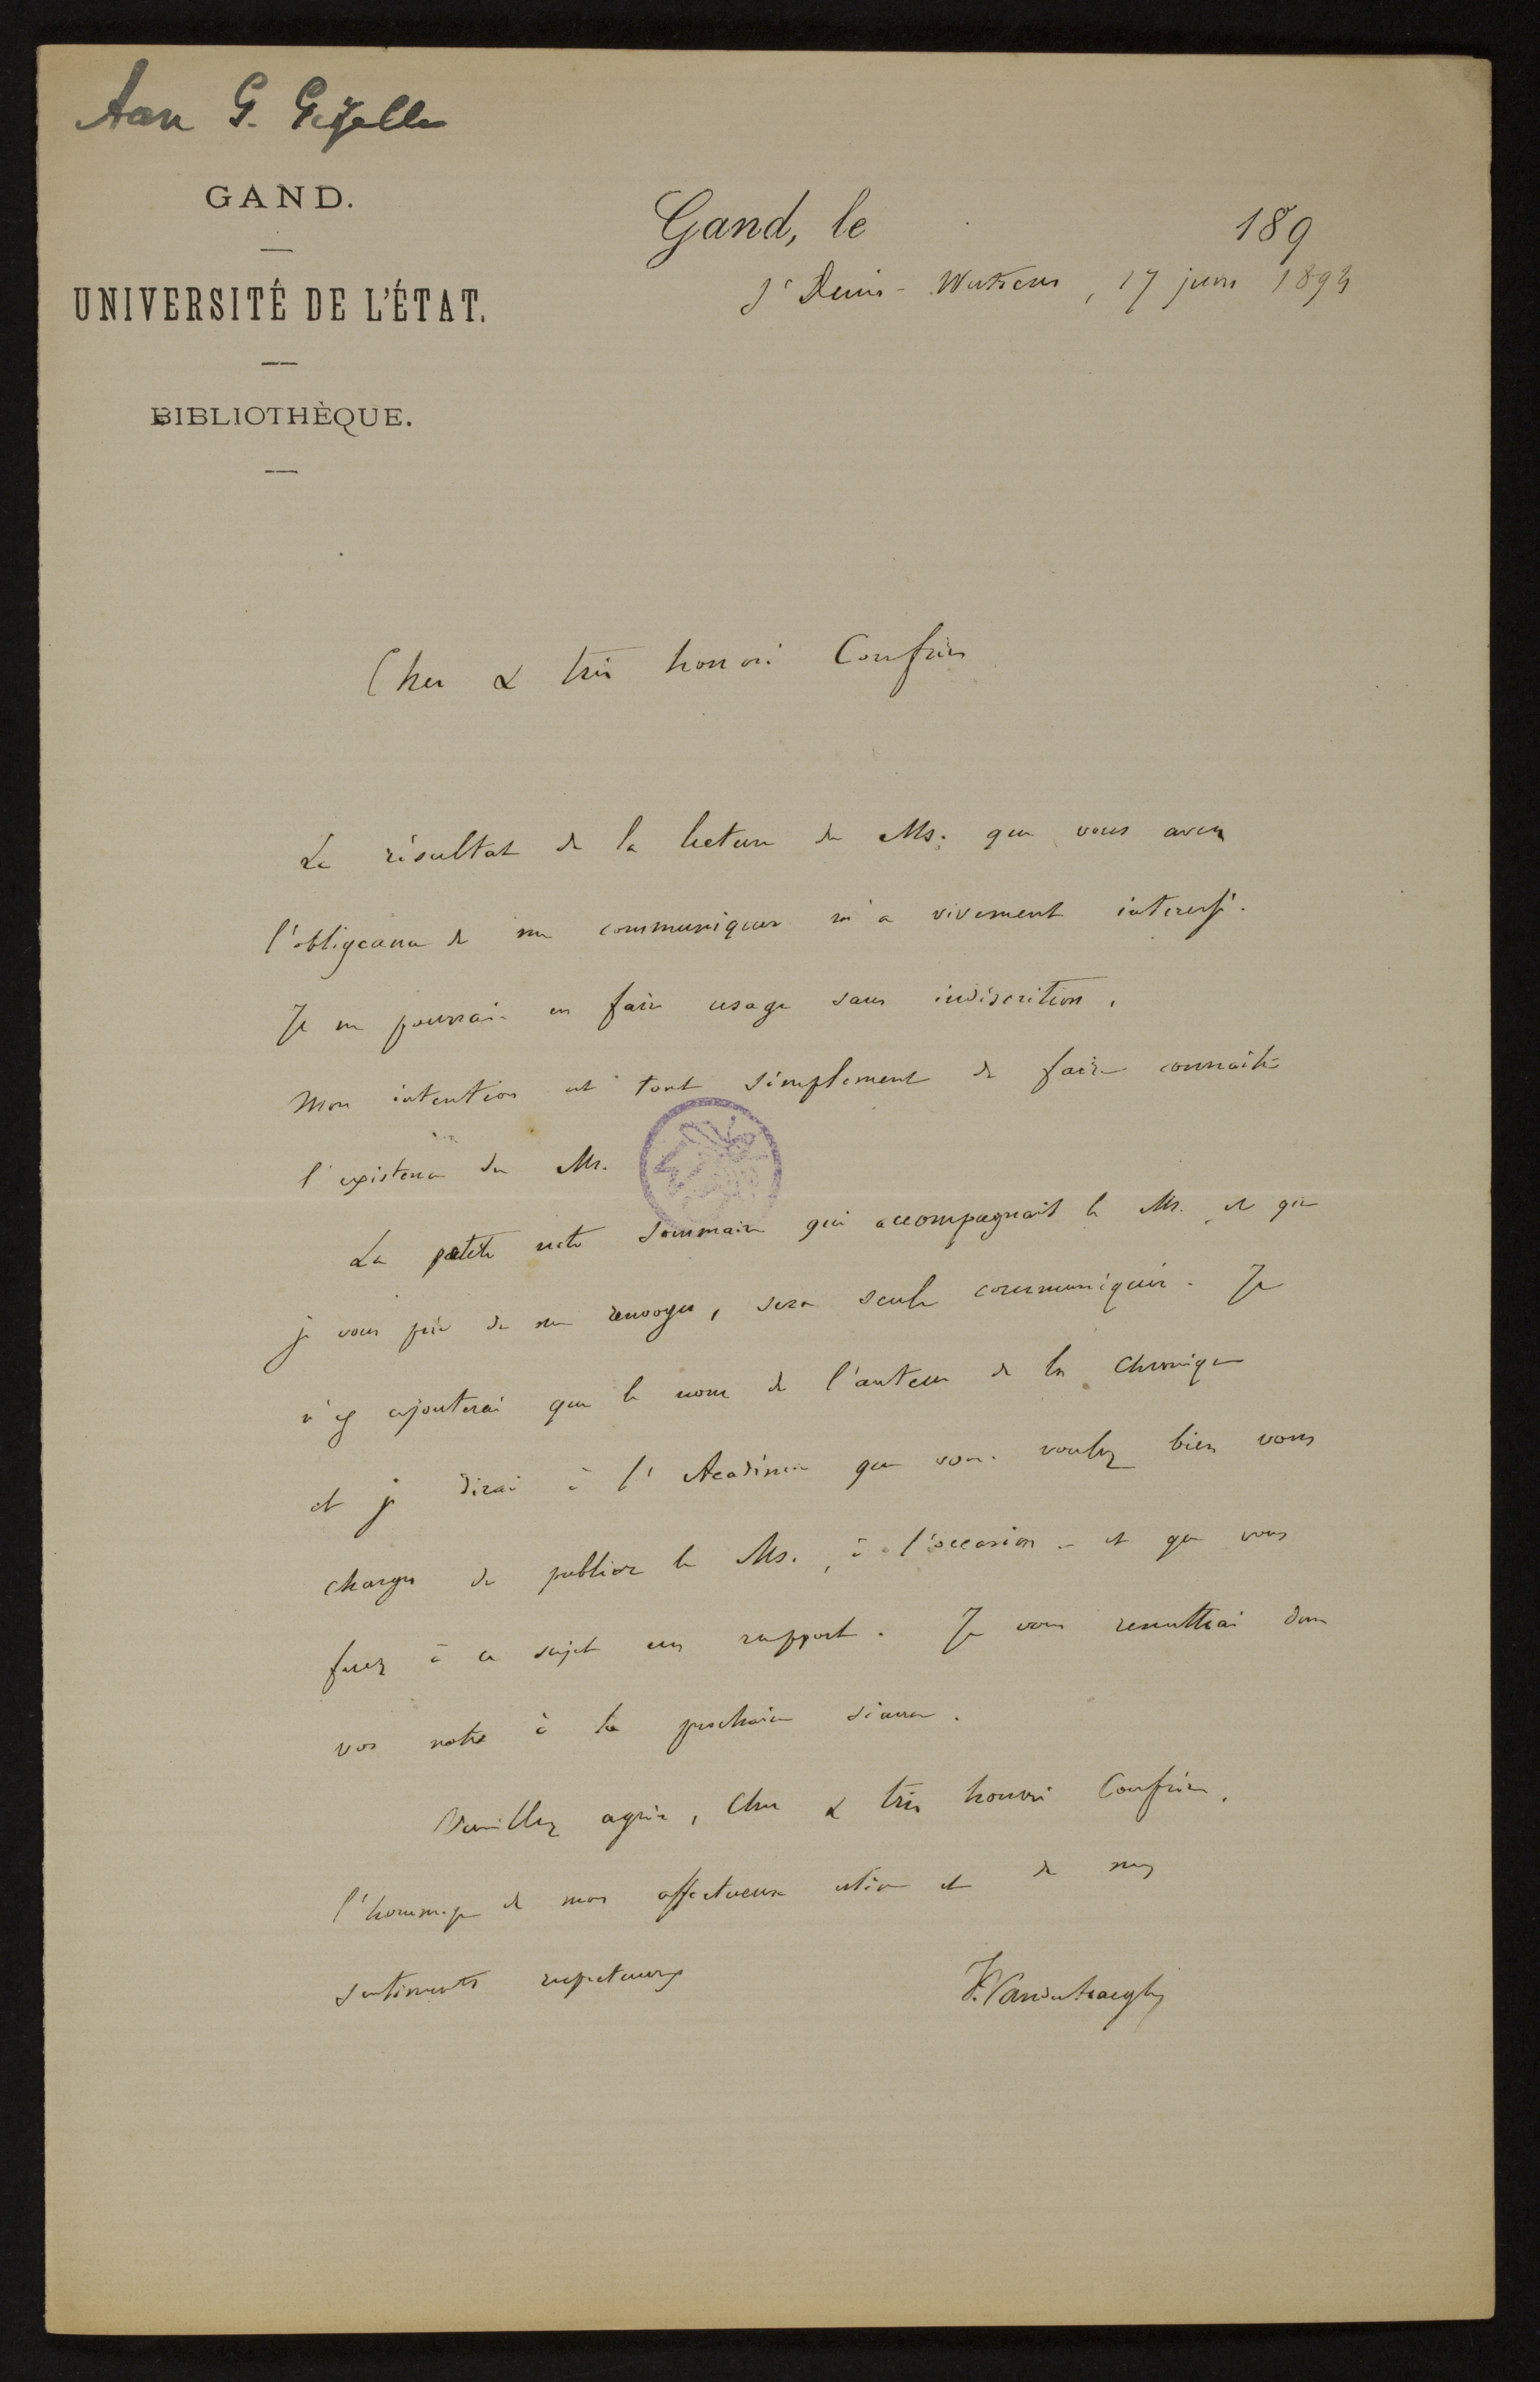 Aan G. Gezelle
GAND.
UNIVERSITÉ DE L'ÉTAT.
BIBLIOTHÈQUE.
Gand, le 189
St Denis-Westrem, 17 juin 1893
Cher & très honoré Confrère
Le résultat de la lecture du Ms. que vous avez
l'obligeance de me communiquer m'a vivement intéressé.
Je ne pourrais en faire usage sans indiscrétion,
Mon intention est tout simplement de faire connaître
l'existence du Ms.
La petite note sommaire qui accompagnait le Ms. et que
je vous prie de me renvoyer, sera seule communiquée. Je
n'y ajouterai que le nom de l'auteur de la Chronique
et je dirai à l'Académie que vous voulez bien vous
charger de publier le Ms., à l'occasion - et que vous
ferez à ce sujet un rapport. Je vous remettrai donc
vos notes à la prochaine séance.
Veuillez agréer, Cher & très honoré Confrère,
l'hommage de mon affectueuse estime et de mes
sentiments respectueux
F. Vanderhaeghen